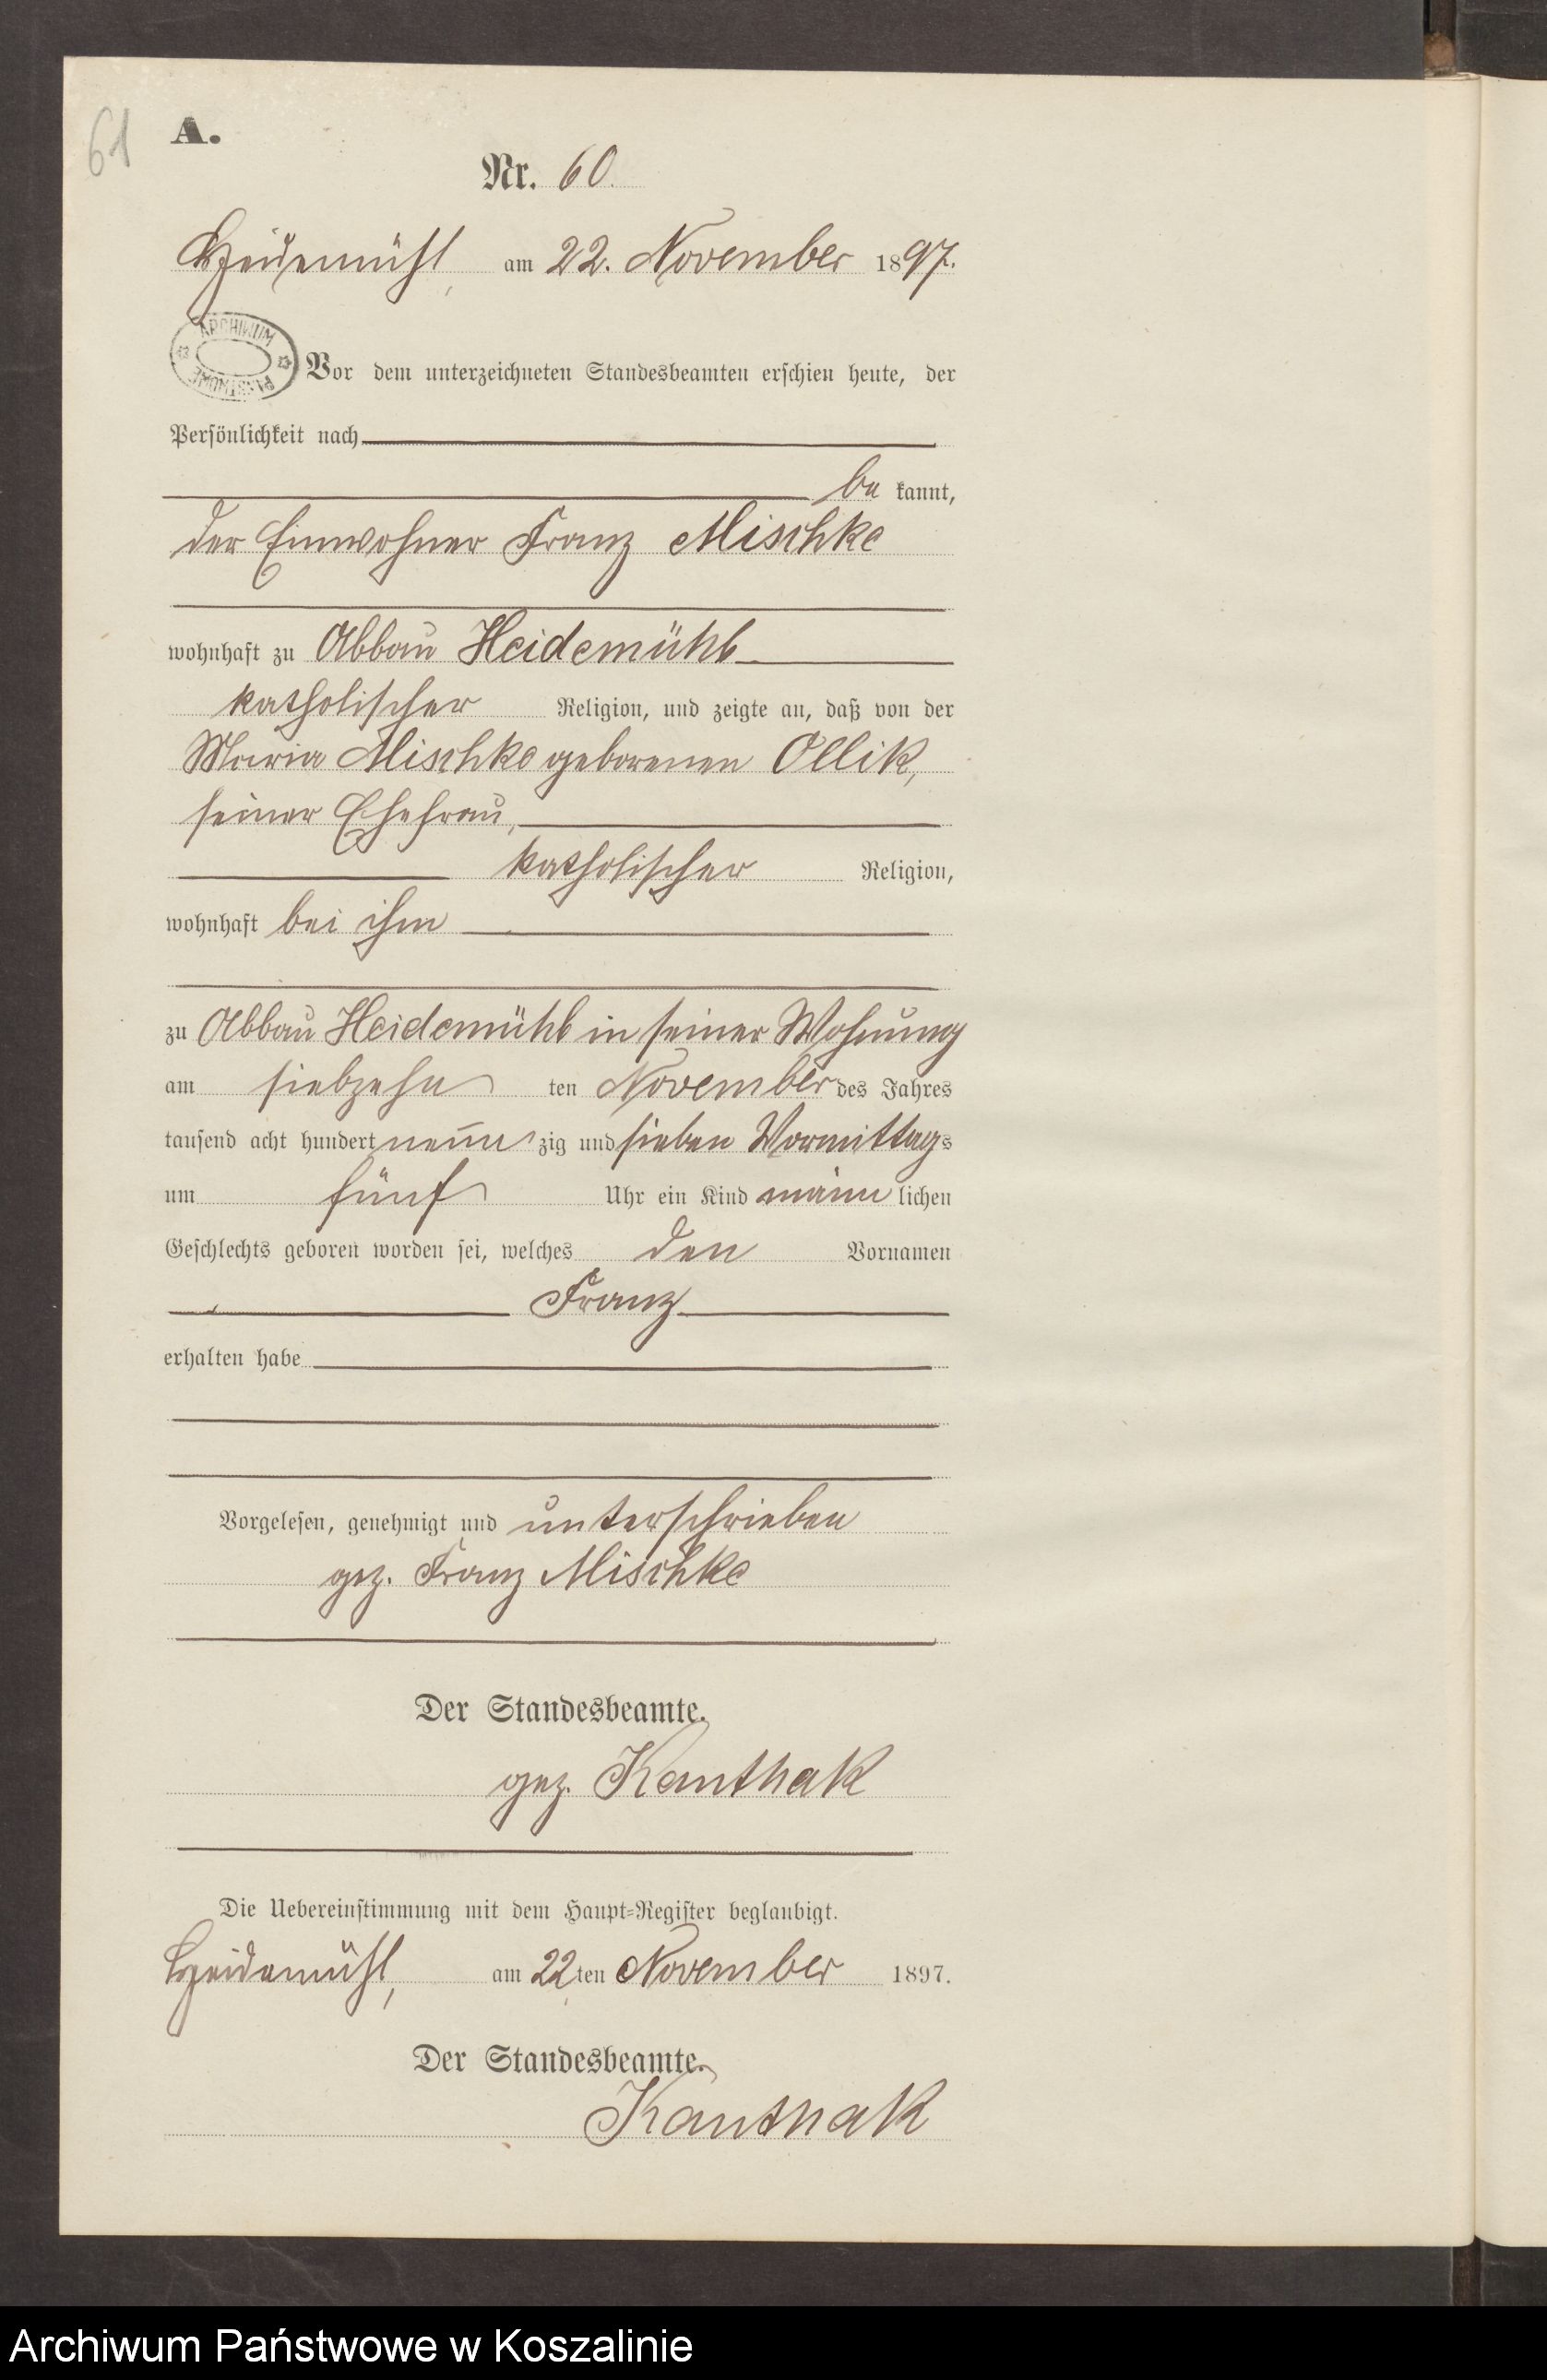 61
A.
Nr. 60.
Heidemühl, am 22. November 1897.
ARCHIWUM PAŃSTWOWE
Vor dem unterzeichneten Standesbeamten erschien heute, der
Persönlichkeit nach
be kannt,
der Einwohner Franz Mischke
wohnhaft zu Abbau Heidemühl
katholischer Religion, und zeigte an, daß von der
Maria Mischke geborenen Ollik,
seiner Ehefrau,
katholischer Religion,
wohnhaft bei ihm
zu Abbau Heidemühl in seiner Wohnung
am siebzehn ten November des Jahres
tausend acht hundert neun zig und sieben Vormittags
um fünf Uhr ein Kind männ lichen
Geschlechts geboren worden sei, welches den Vornamen
Franz
erhalten habe
Vorgelesen, genehmigt und unterschrieben
gez. Franz Mischke
Der Standesbeamte.
gez. Kanthak
Die Uebereinstimmung mit dem Haupt=Register beglaubigt.
Heidemühl, am 22ten November 1897.
Der Standesbeamte.
Kanthak
Archiwum Państwowe w Koszalinie